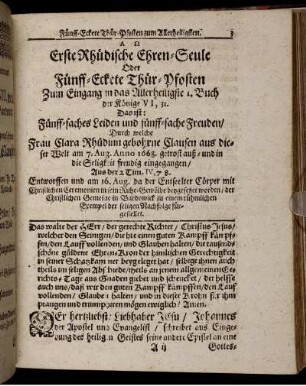 Fünff-Eckete Thür-Pfosten zum Allerheiligsten. 3
A Ω
Erste Rhüdische Ehren-Seule
Oder
Fünff-Eckete Thür-Pfosten
Zum Eingang in das Allerheiligste 1. Buch
der Könige VI, 31.
Das ist:
Fünff-faches Leiden und fünff-fache Freuden/
Durch welche
Frau Clara Rhüdum gebohrne Clausen aus die-
ser Welt am 7. Aug. Anno 1663. getrost auß- und in
die Seligkeit freudig eingegangen/
Aus der 2 Tim. IV, 7 8.
Entworffen und am 16. Aug. da der Entseelter Cörper mit
Christlichen Ceremonien in sein Ruhe-Gewölbe beygesetzet worden/ der
Christlichen Gemeine in Bardowick zu einem rühmlichen
Exempel der seligen Nachfolge für-
gestellet.
Das walte der HErr/ der gerechte Richter/ Christus Jesus/
welcher den Seinigen/ die hie einen guten Kampff kämpf-
fen/ den Lauff vollenden/ und Glauben halten/ die tausend-
schöne güldene Ehren-Kron der himlischen Gerechtigkeit
in seiner Schatzkam̃er beygeleget hat/ selbige ihnen auch
theils am seligen Abschiede/ theils an jenem allgemeinen Ge-
richts-Tage aus Gnaden giebet und schencket/ der helffe
auch uns/ daß wir den guten Kampff kämpffen/ den Lauf
vollenden/ Glaube halten/ und in dieser Krohn für ihm
prangen und triumphiren mögen ewiglich! Amen.
DEr hertzliebste Liebhaber JEsu/ Johannes
der Apostel und Evangelist/ schreibet aus Einge-
bung des heilig. n Geistes seine andere Epistel an eine
A ij Gottes-